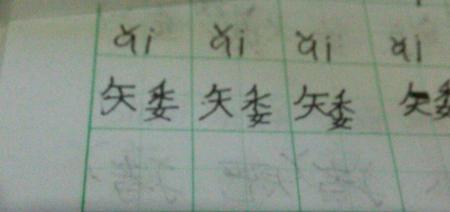 ǎi ǎi ǎi ǎi
矮 矮 矮 矮